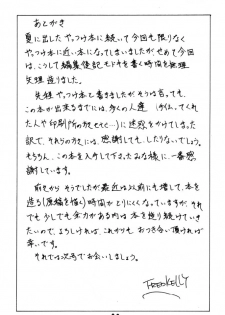 あとがき
夏に出した やっつけ本に続いて今回も限りなく
やっつけ本に近い本になってしまいましたが せめて今回
は、こうして編集後記モドキを書く時間を無理
矢理 造りました。
矢理やっつけ本と書きましたが そうは言っても、
この本が出来るまでには、多くの人達（
た人や印刷所の方々 ）に迷惑をかけてしまった
訳で、それらの方々には、感謝しても、したりないでしょう。
もちろん、この本を入手して下さったみな様に、一番感
謝しています。
前からそうでしたが最近は以前にも増して、本を
造る（原稿を描く）時間がとりにくくなっていますが、それ
でも少しでも余力がある内は本を造り続けていき
たいので、よろしければ、これからもおつき合い頂ければ
幸いです。
それでは次号でお会いしましょう。
FREDKELLY